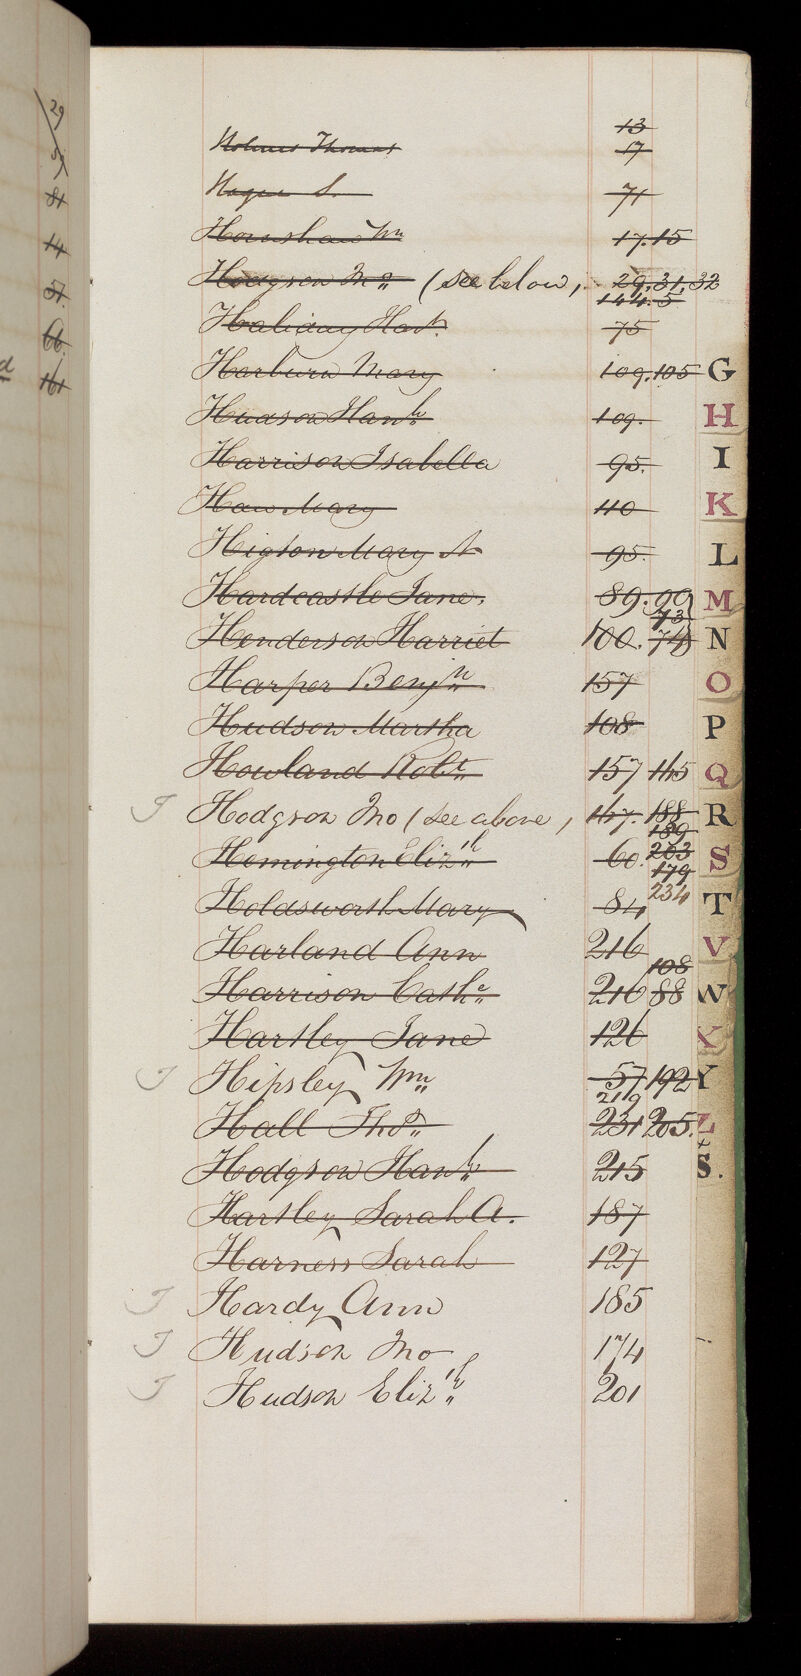 29
59
81
14
51
66
d 161
13
Holmes Thomas 17
Hague S. 71
Hornshaw Wm 17.15
Hodgson Jno (see below, 29.31.32
144.5
Haliday Hanh 75
Harburn Mary 109.105
Hudson Hanh 109.
Harrison Isabella 95.
Haw Mary 110
Higton Mary A 95.
Hardcastle Jane. 89.90
73
Henderson Harriet 100.74
Harper Benjn 157
Hudson Martha 108
Howland Robt 157 145
J Hodgson Jno (see above, 167.188
189
Hemington Elizth 60.203
179
234
Holdsworth Mary 84
Harland Ann 216
108
Harrison Cathe 216 88
Hartley Jane 126
J Hipsley Wm 57 192
219
Hall Thos 231 205.
Hodgson Hanh 215
Hartley Sarah A. 187
Harness Sarah 127
J Hardy Ann 185
J Hudson Jno 174
J Hudson Elizth 201
G
H
I
K
L
M
N
O
P
Q
R
S
T
V
W
X
Y
Z
S.